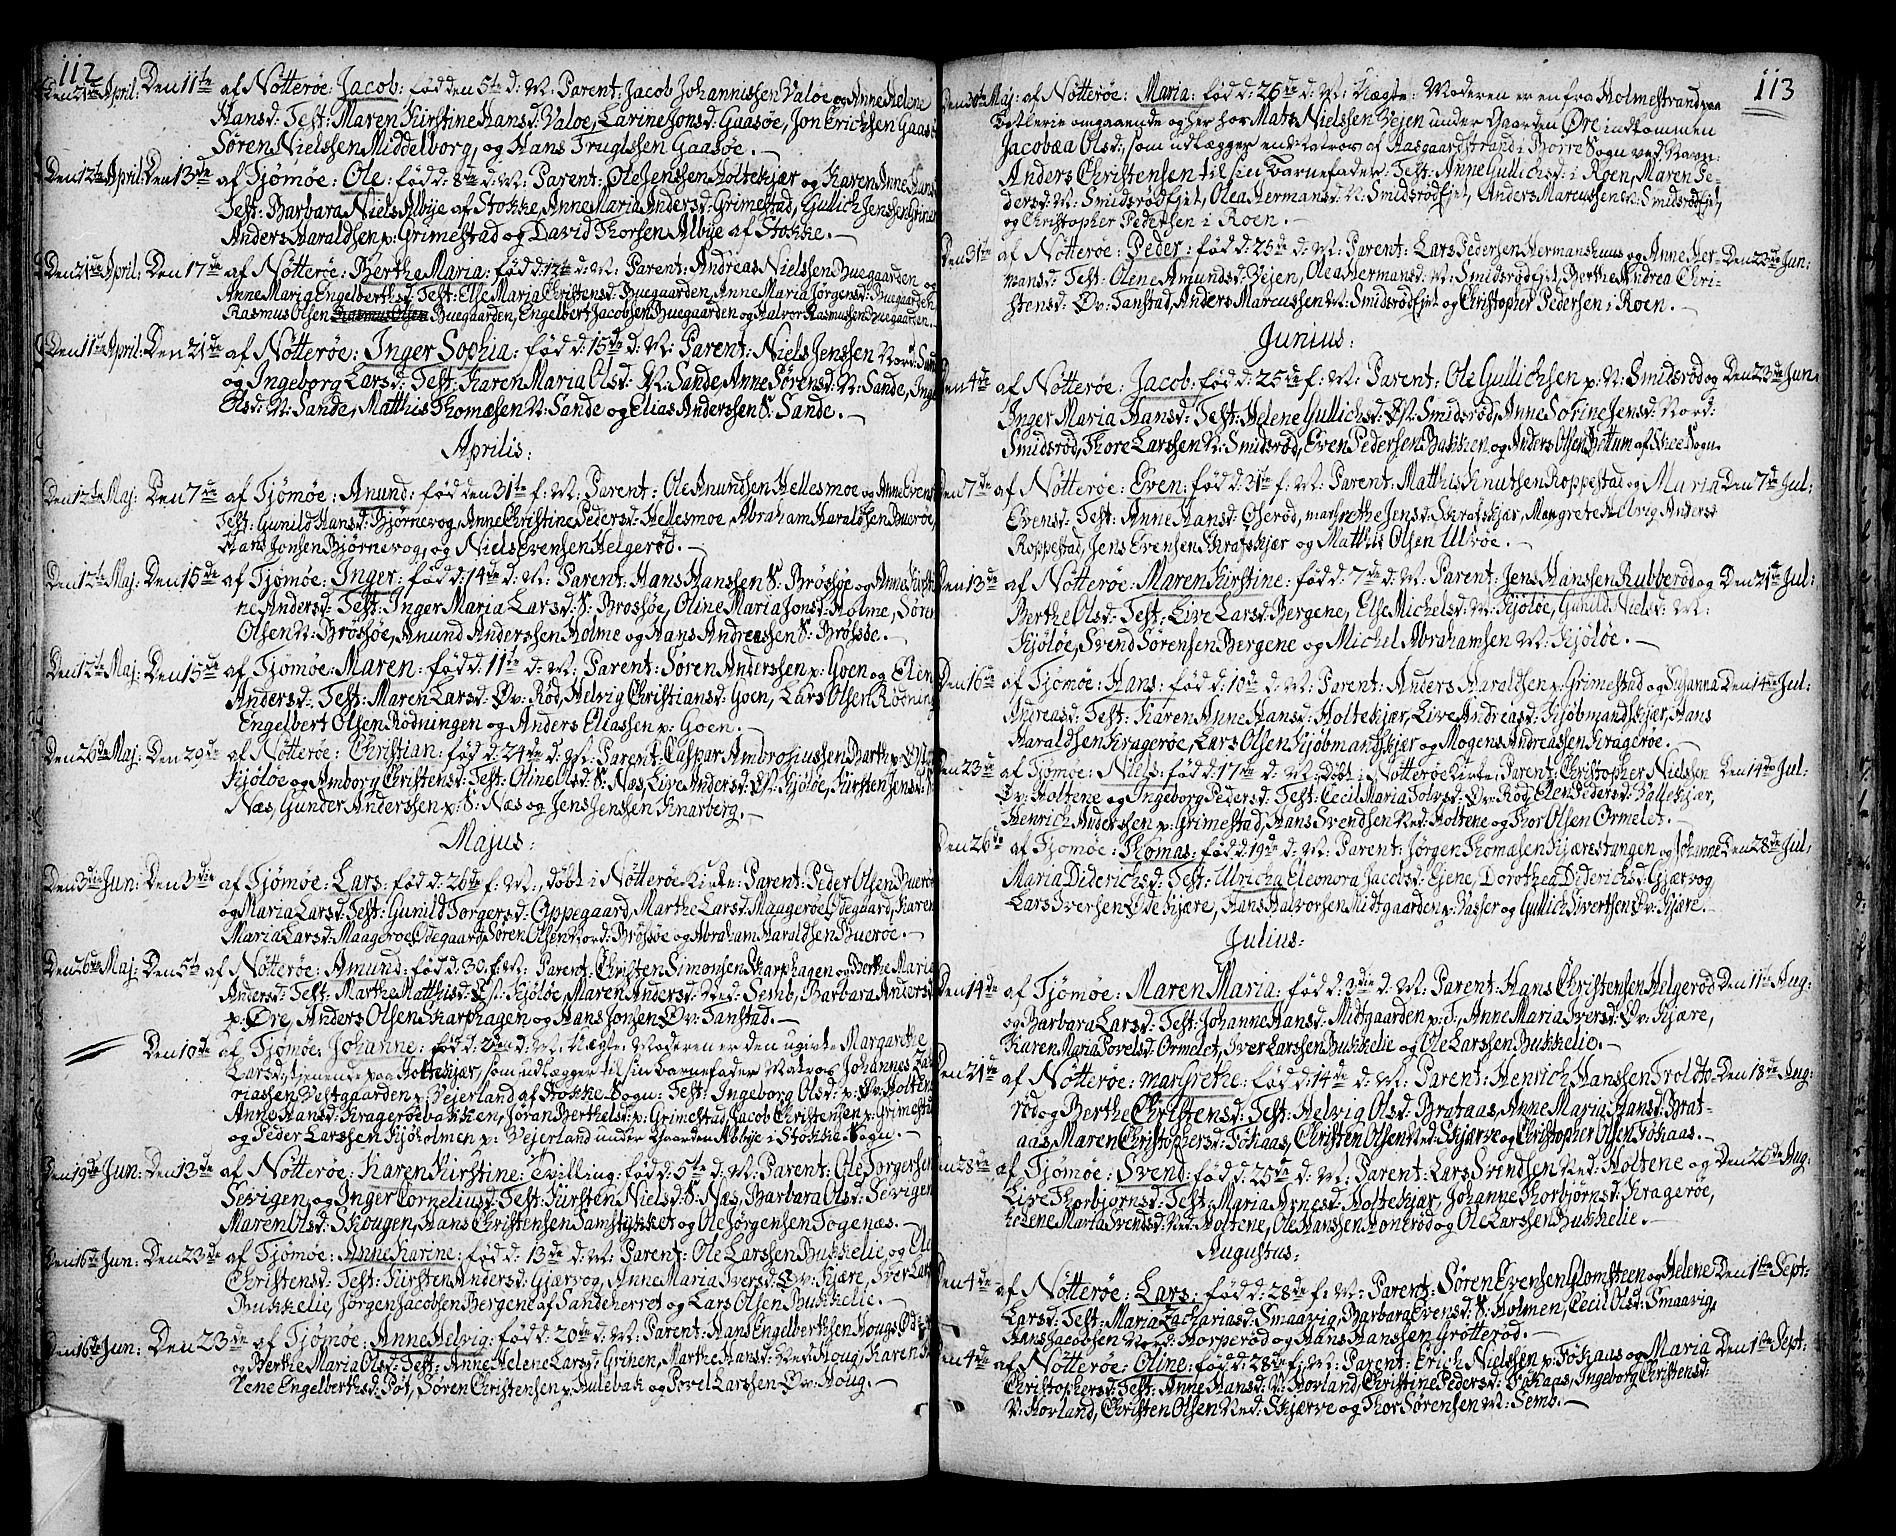 112
Den 21de April: Den 11te af Nötteröe: Jacob: föd den 5te d: M: Parent: Jacob Johannissen Valöe og Anne Helene
Hansd: Test: Maren Kirstine Hansd: Valöe, Larine Jonsd: Gaasöe, Jon Erichsen Gaasöe
Sören Nielssen Middelborg, og Hans Truglssen Gaasöe. —
Den 12te April: Den 13de af Tjömöe: Ole: föd d: 8de d: M: Parent: Ole Jenssen Holtekjær og Karen Anne Hans
Test: Barbara Niels Albye af Stokke, Anne Maria Andersd: Grimestad, Gullich Jenssen Grimes
Anders Haraldsen p: Grimestad og David Thorsen Albye af Stokke. —
Den 21de April: Den 17de af Nötteröe: Berthe Maria: föd d: 12te d: M: Parent: Andreas Nielssen Buegaarden og
Anne Maria Engelberthsd: Test: Else Maria Christensd: Buegaarden, Anne Maria Jörgensd: Buegaarden
Rasmus Olsen Buegaarden, Engelbert Jacobsen Buegaarden og Halvor Rasmussen Buegaarden.
Den 11te April: Den 21de af Nötteröe: Inger Sophia: föd d: 15de d: M: Parent: Niels Jenssen Nord: Sand
og Ingeborg Larsd: Test: Karen Maria Olsd: N: Sande, Anne Sörensd: N: Sande, Inge
Olsd: N: Sande, Matthis Thomæsen N: Sande og Elias Anderssen S: Sande. —
Aprilis:
Den 12te Maj: Den 7de af Tjömöe: Anund: föd den 31te f: M: Parent: Ole Anundsen Hellesmoe og Anne Evens
Test: Gunild Hansd: Björnevog, Anne Christine Pedersd: Hellesmoe, Abraham Haraldsen Bueröe,
Hans Jonsen Björnevog, og Niels Evensen Helgeröd. —
Den 12te Maj: Den 15de af Tjömöe: Inger: föd d: 14de d: M: Parent: Hans Hanssen S: Brösöe og Anna Kirsti
ne Andersd: Test: Inger Maria Larsd: S: Brosöe, Oline Maria Jonsd: Holme, Sören
Olsen N: Brösöe, Anund Anderssen Holme og Hans Andreassen S: Brösöe. —
Den 12te Maj: Den 15de af Tjömöe: Maren: föd d. 11te d: M: Parent: Sören Anderssen p: Goen og Elen
Andersd: Test: Maren Larsd: Öv: Röd, Helvig Christiansd: Goen, Lars Olsen Rödning
Engelbert Olsen Rödningen og Anders Eliassen p: Goen. —
Den 26de Maj: Den 29de af Nötteröe: Christian: föd d: 24de d: M: Parent: Caspar Ambrosiussen Barth p: Öst
Kjöløe og Amborg Christensd: Test: Oline Olsd: S: Næs, Live Andersd: Öst: Kjöløe, Kirsten Jensd: S
Næs, Gunder Anderssen p: S: Næs og Jens Jenssen Knarberg. —
Majus:
Den 3die Jun: Den 3die af Tjömöe: Lars: föd d: 26de f: M:, döbt i Nötteröe Kirke: Parent: Peder Olsen Bueröe
og Maria Larsd: Test: Gunild Torgersd: Oppegaard, Marthe Larsd: Maageröe Ödegaard, Karen
Maria Larsd: Maageröe Ödegaard, Sören Olsen Nord: Brösöe og Abraham Haraldsen Bueröe. —
Den 26de Maj: Den 5te af Nötteröe: Amund: föd d: 30. f: M: Parent: Christen Simonsen Skarphagen og Berthe Maria
Andersd: Test: Marthe Matthisd: Öst: Kjöløe, Maren Andersd: Ned: Semb, Barbara Andersd
p: Öre, Anders Olsen Skarphagen og Hans Jonsen Öv: Tanstad. —
Den 10de af Tjömöe: Johanne: föd d: 2den d: M: Uægte: Moderen er den ugivte Margarthe
Larsd: tjenende paa Holtekjær, som udlægger til sin barnefader Matros Johannes Za
riassen Vestgaarden p: Vejerland af Stokke Sogn: Test: Ingeborg Olsd: p: Öv: Holten
Anne Hansd: Krageröebakken, Jöran Berthelsd: p: Grimestad, Jacob Christensen p: Grimesta
og Peder Larssen Kjöholmen p: Vejerland under Gaarden Albye i Stokke Sogn. —
Den 19de Jun: Den 13de af Nötteröe: Karen Kirstine: Tvilling: föd d: 5te d: M: Parent: Ole Torgersen
Sevigen, og Inger Corneliusd: Test: Kirsten Nielsd: S: Næs, Barbara Olsd: Sevigen
Maren Olsd: Skougen, Hans Christensen Tamstykket og Ole Jörgensen Togenæs. —
Den 16de Jun: Den 23de af Tjömöe: Anne Karine: föd d: 13de d: M: Parent: Ole Larssen Bukkelie og Ole
Christensd: Test: Kirsten Andersd: Gjærvog, Anne Maria Iversd: Öv: Kjære, Iver Lars
Bukkelie, Jörgen Jacobsen Bergene af Sandeherret og Lars Olsen Bukkelie. —
Den 16de Jun: Den 23de af Tjömöe: Anne Helvig: föd d: 20de d: M: Parent: Hans Engelberthsen Hougs Öde
og Berthe Maria Olsd: Test: Anne Helene Larsd: Grinen, Marthe Hansd: Ned: Houg, Karen
Lene Engelberthsd: Pöt, Sören Christensen p: Hulebak og Povel Larssen Öv: Houg. —
113
Den 30te Maj: af Nötteröe: Maria: föd d: 26de d: M: Uægte: Moderen er en fra Holmestrand paa
Betlerie omgaaende og her hos Mats Nielssen Vejen under Gaarden Öre indkommen
Jacobæa Olsd:, som udlægger en Matros af Aasgaardstrand i Borre Sogn ved Navn:
Anders Christensen til sin Barnefader: Test: Anne Gullichsd: i Roen, Maren Pe-
dersd: N: Smidsrödejet, Olea Hermansd: N: Smidsrödejet, Anders Marcussen N: Smidsrödejet,
og Christopher Pedersen i Roen. —
Den 31te af Nötteröe: Peder: föd d: 25de d: M: Parent: Lars Pedersen Hermanshuus og Anne Her- Den 23de Jun:
mansd: Test: Olene Amundsd: Vejen, Olea Hermansd: N: Smidsrödejet, Berthe Andrea Chri-
stensd: Öv: Tanstad, Anders Marcussen N: Smidsrödejet og Christopher Pedersen i Roen. —
Junius:
Den 4de af Nötteröe: Jacob: föd d: 25de f: M: Parent: Ole Gullichsen p: N: Smidsröd og Den 23de Jun:
Inger Maria Hansd: Test: Helene Gullichsd: Öst: Smidsröd, Anne Sorine Jensd: Nord:
Smidsröd, Thore Larssen N: Smidsröd, Even Pedersen Bakken og Anders Olsen Bettum af Skee Sogn.
Den 7de af Nötteröe: Even: föd d: 31te f: M: Parent: Matthis Knutsen Roppestad og Maria Den 7de Jul:
Evensd: Test: Anne Hansd: Öseröd, Margrethe Jensd: Skrafskjær, Margrete Helvig Andersd
Roppestad, Jens Evensen Skrafskjær og Matthis Olsen Ulvöe. —
Den 13de af Nötteröe: Maren Kirstine: föd d: 7de d: M: Parent: Jens Hanssen Rubberöd og Den 21de Jul:
Berthe Olsd: Test: Live Larsd: Bergene, Else Michelsd: N: Kjöløe, Gunild Nielsd: N:
Kjöløe, Svend Sörensen Bergene og Michel Abrahamsen N: Kjöløe. —
Den 16de af Tjömöe: Hans: föd d: 10de d: M: Parent: Anders Haraldsen p: Grimestad og Susanna Den 14de Jul:
Andreasd: Test: Karen Anne Hansd: Holtekjær, Live Andreasd: Kjöbmandskjær, Hans
Haraldsen Krageröe, Lars Olsen Kjöbmandskjær og Mogens Andreassen Krageröe. —
Den 23de af Tjömöe: Niels: föd d: 17de d: M: Döbt i Nötteröe Kirke: Parent: Christopher Nielssen Den 14de Jul:
Öv: Holtene og Ingeborg Pedersd: Test: Cecil Maria Tolvsd: Öv: Röd, Elen Pedersd: Vallekjær,
Henrich Anderssen p: Grimestad, Hans Svendsen Ned: Holtene og Thor Olsen Ormelet. —
Den 26de af Tjömöe: Thomas: föd d: 19de d: M: Parent: Jörgen Thomæsen Kjærestangen og Johanne Den 28de Jul:
Maria Diderichsd: Test: Ulricha Eleonora Jacobsd: Ejene, Dorothea Diderichsd: Gjærvog
Lars Iversen Ödekjære, Hans Halvorsen Midtgaarden p: Vasser og Gullich Sivertsen Öv: Kjære. —
Julius:
Den 14de af Tjömöe: Maren Maria: föd d: 3die d: M: Parent: Hans Christensen Helgeröd Den 11te Aug:
og Barbara Larsd: Test: Johanne Hansd: Midtgaarden p: T:, Anne Maria Iversd: Öv: Kjære,
Karen Maria Povelsd: Ormelet, Iver Larssen Bukkelie og Ole Larssen Bukkelie. —
Den 21de af Nötteröe: Margrethe: föd d: 14de d: M: Parent: Henrich Hanssen Troldte- Den 18de Aug:
röd og Berthe Christensd: Test: Helvig Olsd: Brataas, Anne Maria Hansd: Brat-
aas, Maren Christophersd: Fökaas, Christen Olsen Ned: Skjærve og Christopher Olsen Fökaas. —
Den 28de af Tjömöe: Svend: föd d: 25de d: M: Parent: Lars Svendsen Ned: Holtene og Den 26de Aug:
Live Thorbjörnsd: Test: Maria Arnesd: Holtekjær, Johanne Thorbjörnsd: Krageröe,
Helene Maria Svendsd: Ned: Holtene, Ole Hanssen Honeröd og Ole Larssen Bukkelie. —
Augustus:
Den 4de af Nötteröe: Lars: föd d: 28de f: M: Parent: Sören Evensen Glomsteen og Helene Den 1ste Sept:
Larsd: Test: Maria Zachariasd: Smaavig, Barbara Evensd: S: Holmen, Cecil Olsd: Smaavig,
Hans Jacobsen Nord: Horperöd og Hans Hanssen Grötteröd. —
Den 4de af Nötteröe: Oline: föd d: 28de f: M: Parent: Erich Nielssen p: Fökaas og Maria Den 1ste Sept:
Christophersd: Test: Anne Hansd: V: Hovland, Christine Pedersd: Fökaas, Ingeborg Christensd:
V: Hovland, Christen Olsen Ned: Skjærve og Thor Sörensen N: Semb. —